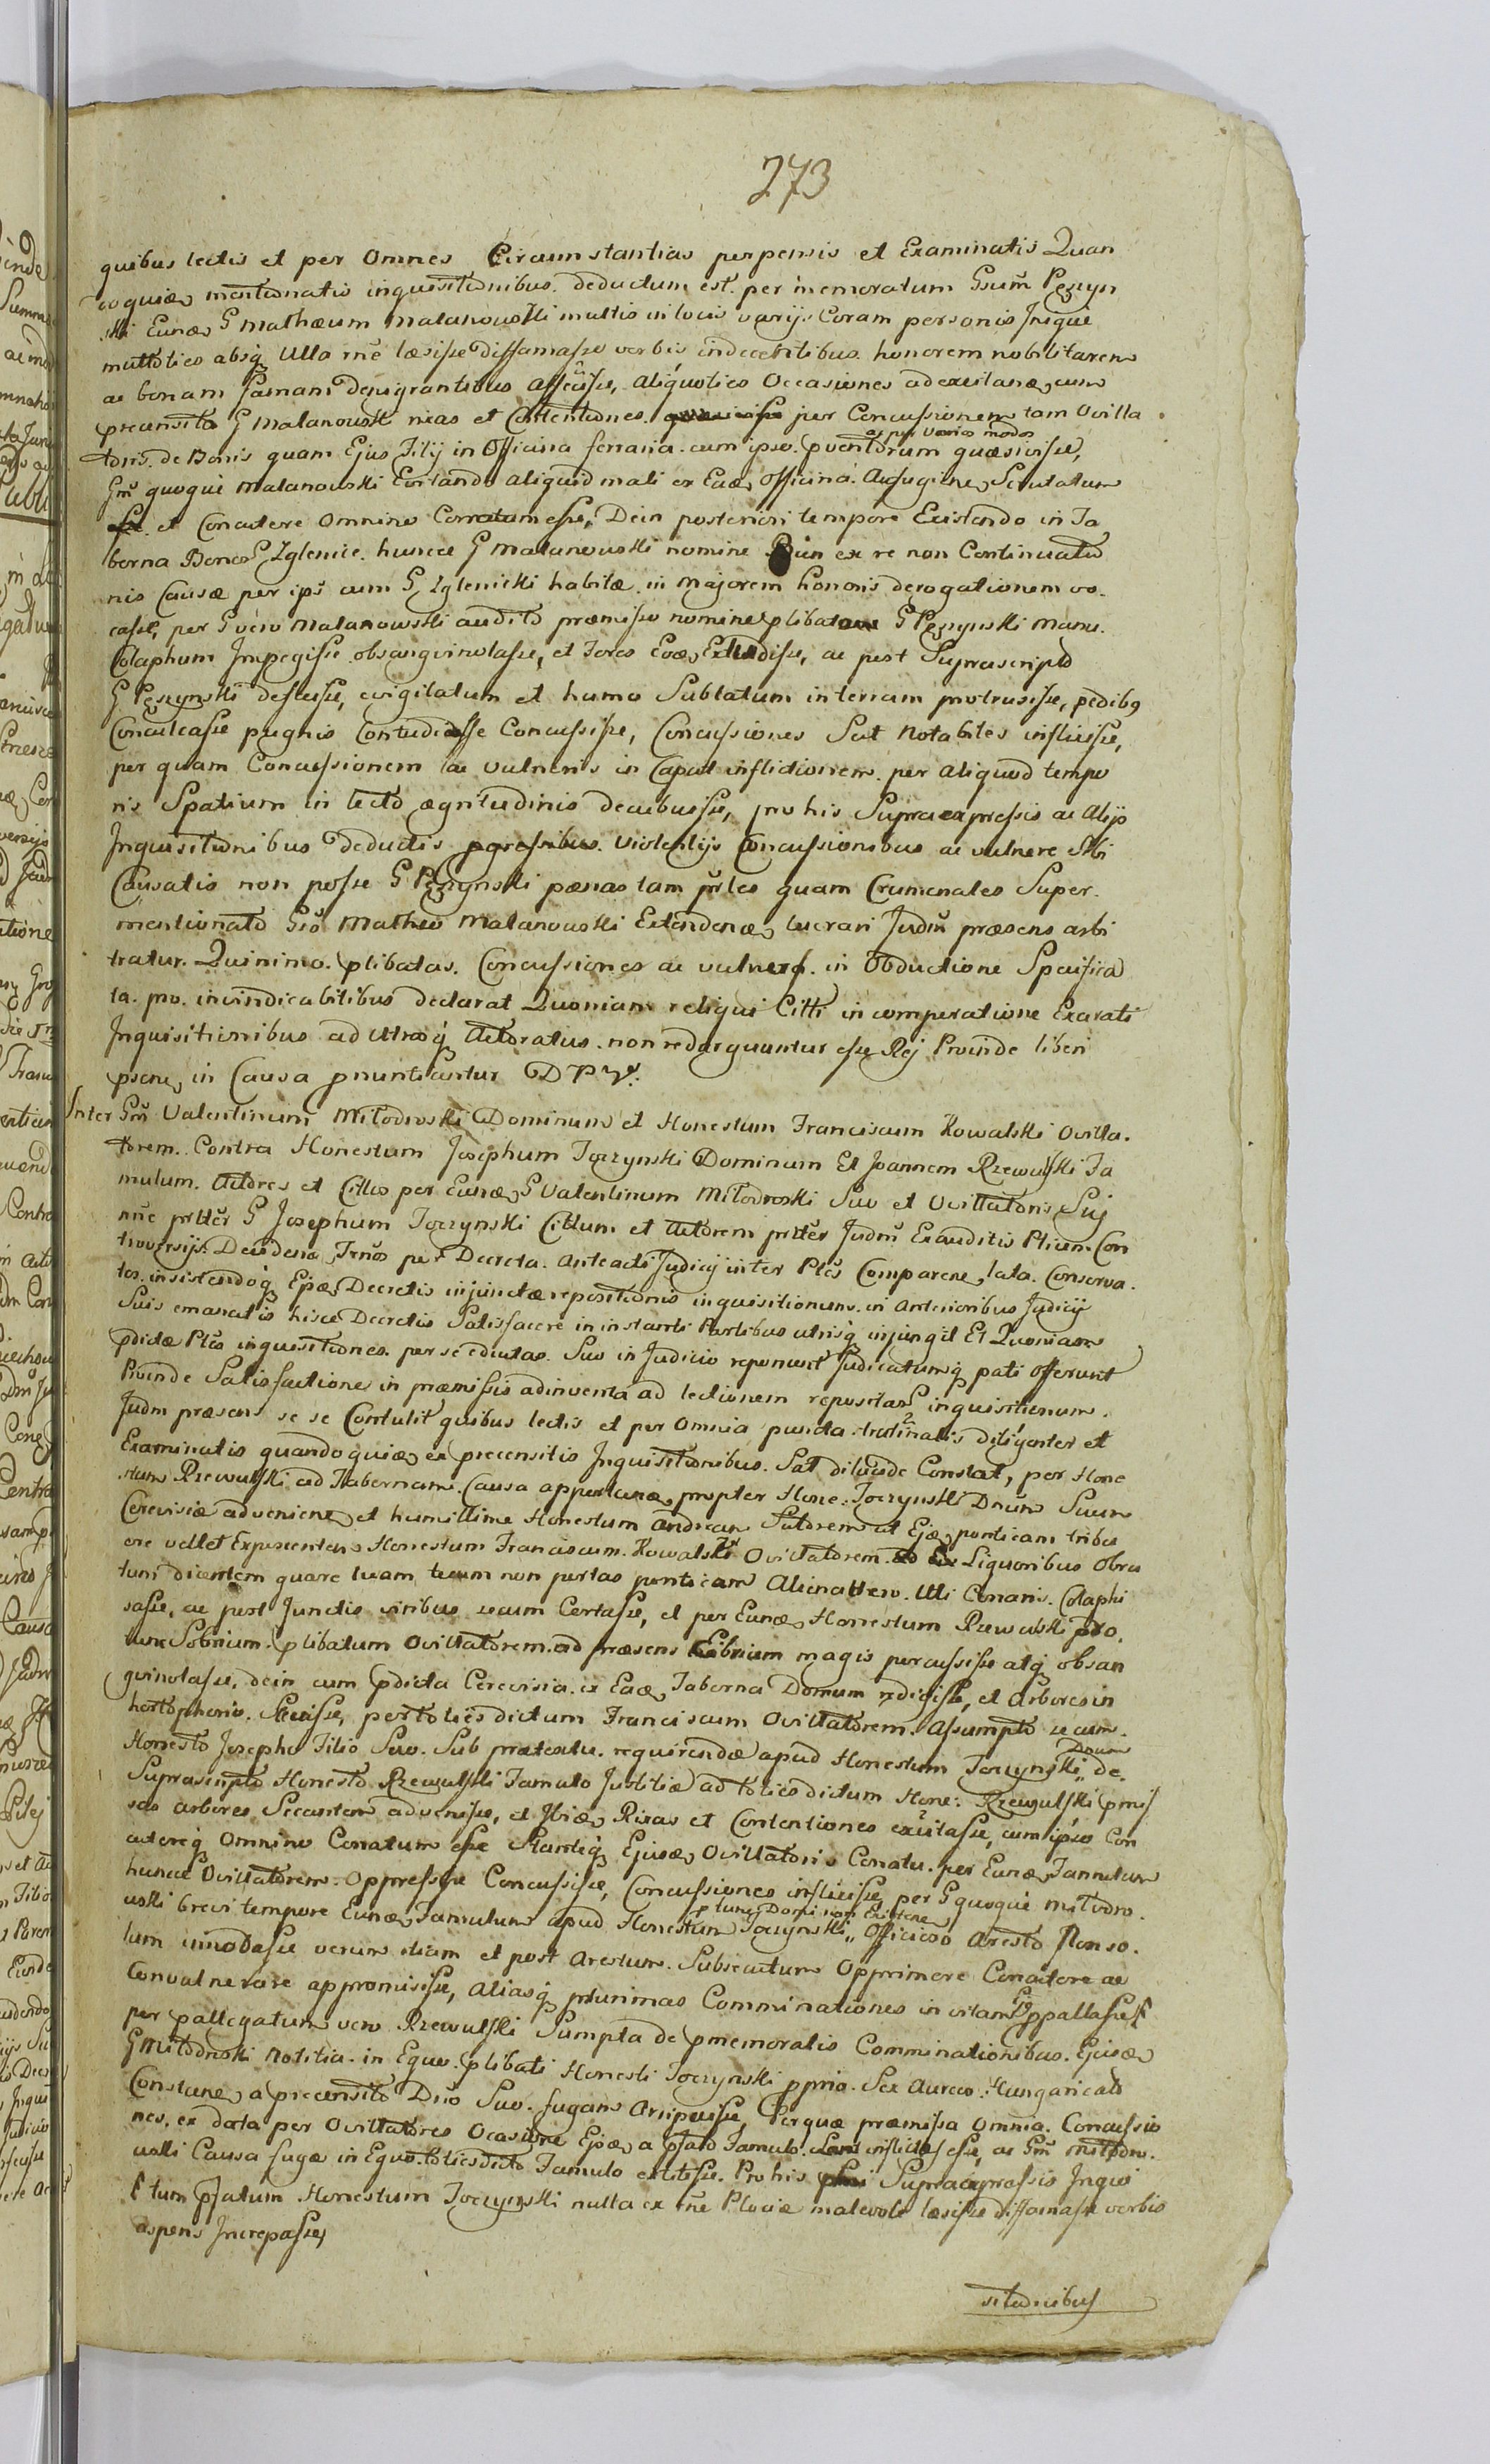 273
quibus lectis et per Omnes Circumstantias perpensis et Examinatis Quan
doquidem mentionatis inquisitionibus deductum est per memoratum Gsum Pęzyn
ski Eundem G Mathæum Malanowski multis in locis varijs Coram personis Inique
multoties absq Ulla rñe læsisse diffamasse verbis indecentibus honorem nobilitarem
ac bonam famam denigrantibus affecisse, aliquoties Occasiones ad excitandas cum
precensito G Malanowski rixas et Contentiones per Concussionem tam Ovilla
toris de Bonis quam Ejus Filij in Officina ferraria cum ipso pventorum ac per varios modos quæsivisse,
Gm quoque Malanowski Evitando aliquid mali ex Eadem Officina Aufugiendo Scrutatum
et Concutere Omnino Conatum esse, Dein posteriori tempore Existendo in Ta
berna Bonor Zglenice hunce G Malanowski nomine ex re non Continuatio
nis Causæ per ips cum G Zglenicki habitæ in majorem honoris derogationem vo
casse, per G vero Malanowski audito præmisso nomine plibatum G Pęzynski manu
Colaphum Impegisse obsangvinolasse, et Fores Eodem Extrudisse, ac post Suprascripto
G Pęzynski defluisse, evigilatum et humo Sublatum in terram protrusisse, pedibq
Conculcasse pugnis Contudisse Concussisse, Concussiones Sat notabiles inflixisse,
per quam Concussionem ac vulneris in Caput inflictionem per aliquod tempo
ris Spatium in lecto ægritudinis decubuisse, pro his Supraexpressis ac Alijs
Inquisitionibus deductis pgressibus Violentijs Concussionibus ac vulnere Sibi
Causatis non posse G Pęzynski pænas tam prles quam Crumenales Super
mentionato Gso Matheo Malanowski Extendendas lucrari Judm præsens arbi
tratur. Quinimo plibatas Concussiones ac vulnera in Obductione Specifica
ta pro invindicabilibus declarat Quoniam reliqui Citti in comperatione Exarati
Inquisitionibus ad utroq Actoratus non redarguuntur esse Rej Proinde liberi
psentem in Causa pnuntiantur D P V.
Inter Gm Valentinum Miłodroski Dominum et Honestum Franciscum Kowalski Ovilla
torem Contra Honestum Josephum Toczynski Dominum Et Joannem Rzewuski Fa
mulum. Actores et Cittos per Eundem G Valentinum Miłodroski Suo et Ovillatoris Sui
nne prtter G Josephum Toczynski Cittum et Actorem prtter Judm Exauditis Ptium Con
troversijs Decidendo Trnos per Decreta anteacti Judicij inter Ptes Comparentes lata Conserva
tos insistendoq Ejdem Decretis injunctæ repositionis inquisitionum in anterioribus Judicij
Suis emanatis hisce Decretis Satisfacere in instanti Partibus utrisq injungit Et Quoniam
pdictæ Ptes inquisitiones per se eductas Suo in Judicio reponunt Judicatumq pati offerunt
Proinde Satisfactione in præmissis adinventa ad lectionem repositarum inquisitionum
Judm præsens se se Contulit quibus lectis et per Omnia puncta trutinatis diligenter et
Examinatis quandoquidem ex precensitis Inquisitionibus Sat dilucide Constat, per Hone
stum Rzewuski ad Tabernam Causa apportandæ propter Hone: Toczynski Dnum Suum
Cerevisiæ advenientem et humillime Honestum Andream Sutorem ut Ejdem ponticam tribu
ere vellet Exposcentem Honestum Franciscum Kowalski Ovillatorem Liquoribus Obru
tum dicentem quare tuam tecum non portas ponticam Alienam vero Uti Conaris Colaphi
sasse, ac post Junctis viribus secum Certasse, et per Eundem Honestum Rzewuski pro
tunc Sobrium plibatum Ovillatorem ad præsens Ebrium magis percussisse atq obsan
gvinolasse, dein cum pdicta Cerevisia ex Eadem Taberna Domum rediisse, et Arbores in
hortophorio Secuisse, per toties dictum Franciscum Ovillatorem Assumpto secum
Honesto Josepho Filio Suo Sub prætextu requirendæ apud Honestum Toczynski Dnum de
Suprascripto Honesto Rzewuski Famulo Justitiæ ad toties dictum Hone: Rzewuski pmis
sas arbores Secantem advenisse, et Ibidem Rixas et Contentiones excitasse, cum ipso Con
cutereq Omnino Conatum esse Stanteq Ejusdem Ovillatoris Conatu per Eundem Famulum
hunce Ovillatorem Oppressisse Concussisse, Concussiones inflixisse per G quoque Miłodro
wski brevi tempore Eundem Famulum apud Honestum Toczynski p tunc Domi non Existente Officioso Aresto
tum innodasse verum etiam et post Arestum Subsecutum Opprimere Concutere ac
Convulnerare appromisisse, aliasq plurimas Comminationes in vitam Ejq ppallasse
per pallegatum vero Rzewuski Sumpta de pmemoratis Comminationibus Ejusdem
G Miłodroski notitia in Equo plibati Honesti Toczynski pprio Sex Aureos Hungaricales
Constante a precensito Dno Suo fugam Arripuisse, Perquæ præmissa Omnia Concussio
nes, ex data per Ovillatores Ocasione Ejdem a pfato Famulo inflictas esse, ac Gm Miłodro
wski Causa fugæ in Equo toties dicto Famulo extitisse. Pro his Supraexpressis Inqui
tum pfatum Honestum Toczynski nulla ex rñe Plociæ malevole læsisse diffamasse verbis
asperis Increpasse
sitionibus